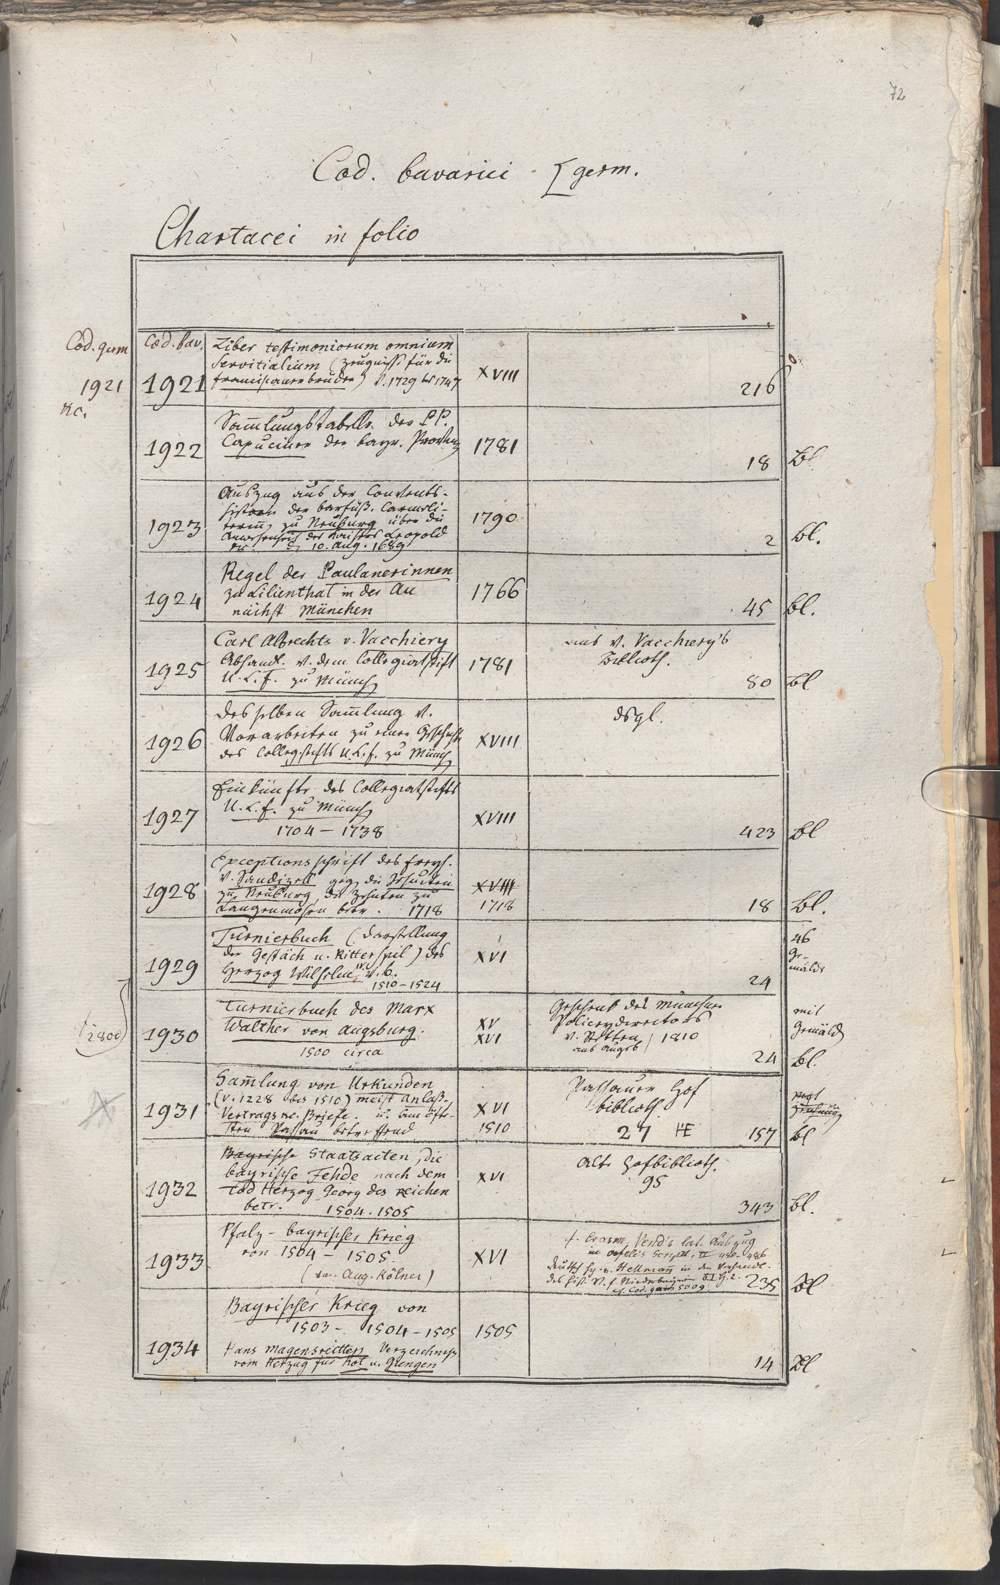 72
Cod. bavarici [germ.
Chartacei in folio
Cod. germ
1921
Cod. bav.
1921
Liber testimoniorum omnium
Servitialium (Zeugniss für die
Franciscanerbrüder) v. 1729 bis 1747
XVIII
216
1922
Sam̄lungstabelle der PP.
Capuciner der bayr. Provinz
1781
18
Bl.
1923
Auszug aus der Convents-
histori der barfüß. Carmeli-
terin̄, zu Neuburg über die
Anwesenheit des Kaisers Leopold
10. Aug. 1689
1790
2
bl.
1924
Regel der Paulanerinnen
zu Lilienthal in der Au
nächst München
1766
45
bl.
1925
Carl Albrechts v. Vacchiery
Abhandl. v. dem Collegiatstift
U. L. f. zu Münch
1781
aus v. Vacchiery's
Biblioth.
80
bl
1926
Desselben Sam̄lung v.
Vorarbeiten zu einer Geschichte
des Collegstifts U. L. f. zu Münch
XVIII
dsgl.
1927
Einkünfte des Collegiatstifts
U. L. f. zu Münch
1704 – 1738
XVIII
423
bl
1928
Exceptionsschrift des freyh.
v. Sandizell geg. die Jesuiten
zu Neuburg, die Zehnten zu
Langenmosen betr. 1718
XVIII
1718
18
bl.
1929
Turnierbuch (Darstellung
der Gestäch u. Ritterspil) des
Herzog Wilhelm IV. v. b.
1510–1524
XVI
24
46
Ge-
mälde
1930
Turnierbuch des Marx
Walther von Augsburg.
1500 circa
XV
XVI
Geschenk des Münchner
Policeydirectors
v. Stetten
aus Augsb
1810
24
mit
Gemäld
bl.
1931
Sam̄lung von Urkunden
(v. 1228 bis 1510) meist Anlaß-
Vertrags &c. Briefe
Passau betreffend
XVI
1510
Passauer Hof
biblioth
27
157
bl
1932
Bayrische Staatsacten, die
bayrische Fehde nach dem
Tod Herzog Georg des Reichen
betr. 1504. 1505
XVI
Alte Hofbiblioth.
95
343
bl.
1933
Pfalz-bayrischer Krieg
von 1504 – 1505.
(von Aug. Kölner)
XVI
f. Erasm. Vend's lat. Auszug
in Oefele's Script. II
Deutsch hg. v. Hellmann in den Verhandl.
des hist. V. f. Niederbayern
cf. Cod. germ. 5009
235
Bl
1934
Bayrischer Krieg von
1503 – 1504 – 1505
Hans Magensreitters Verzeichniß
vom Herzug für Kol u. Giengen
1505
14
Bl